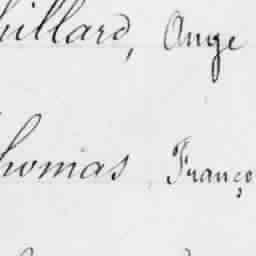 hillard, Ange
homas Franço